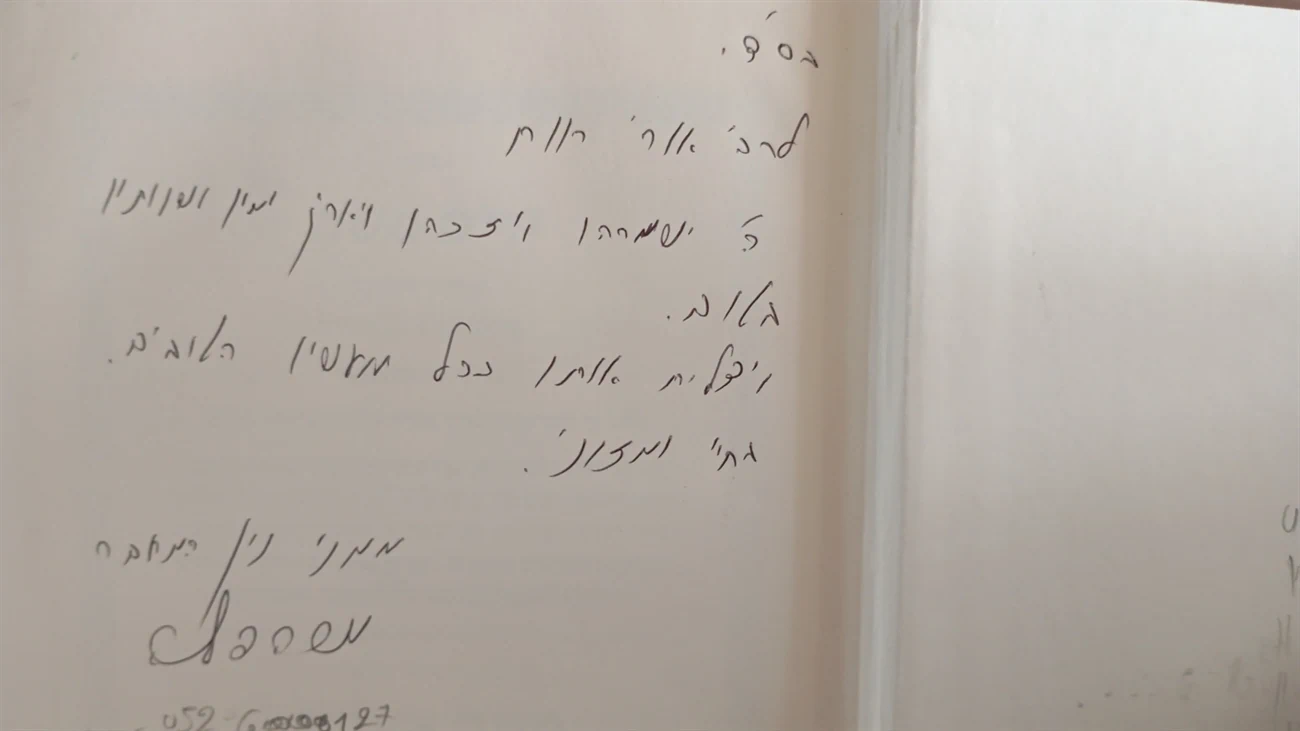 בס״ד.
לרב׳ אורי רווח
ה׳ ישמרהו ויזכהו ויאריך ימיו ושנותיו
בטוב.
ויצליח אותו בכל מעשיו הטובים.
בחיי ומזוני.
ממני נין המחבר
052-